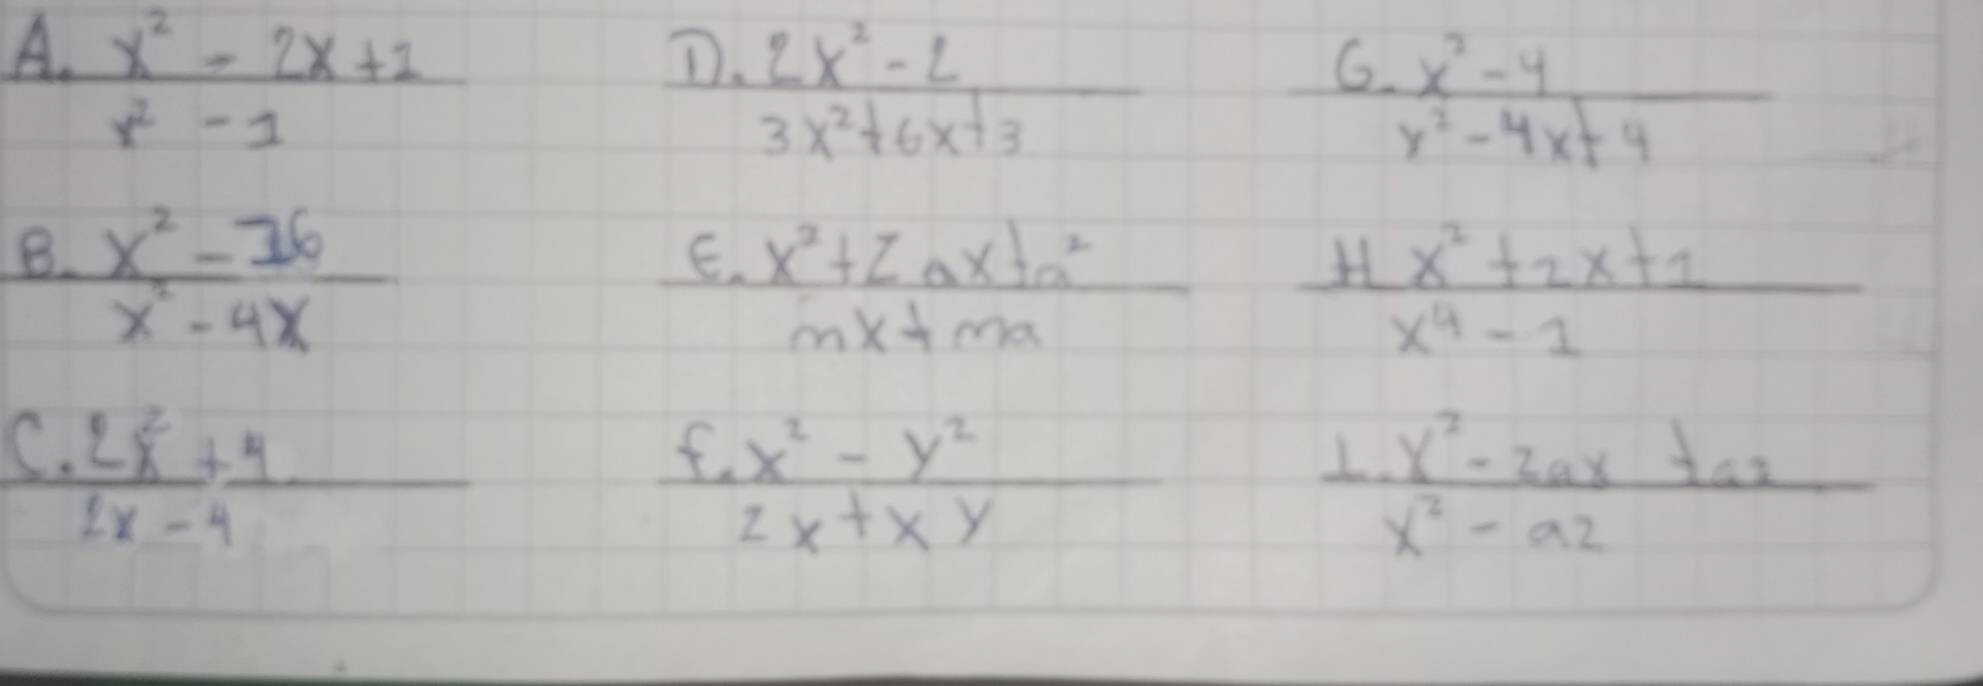 A. x² - 2x+1
x² - 1
D. 2x² - 2
3x²+6x+3
G. x² - 4
x² - 4x+4
B. x² - 16
x² - 4x
E. x²+2ax+a²
mx+ma
H x² +2x+1
x⁴ - 1
C. 2x² +4
2x - 4
f. x² - y²
2x+xy
I. x² - 2ax +a2
x² - a2